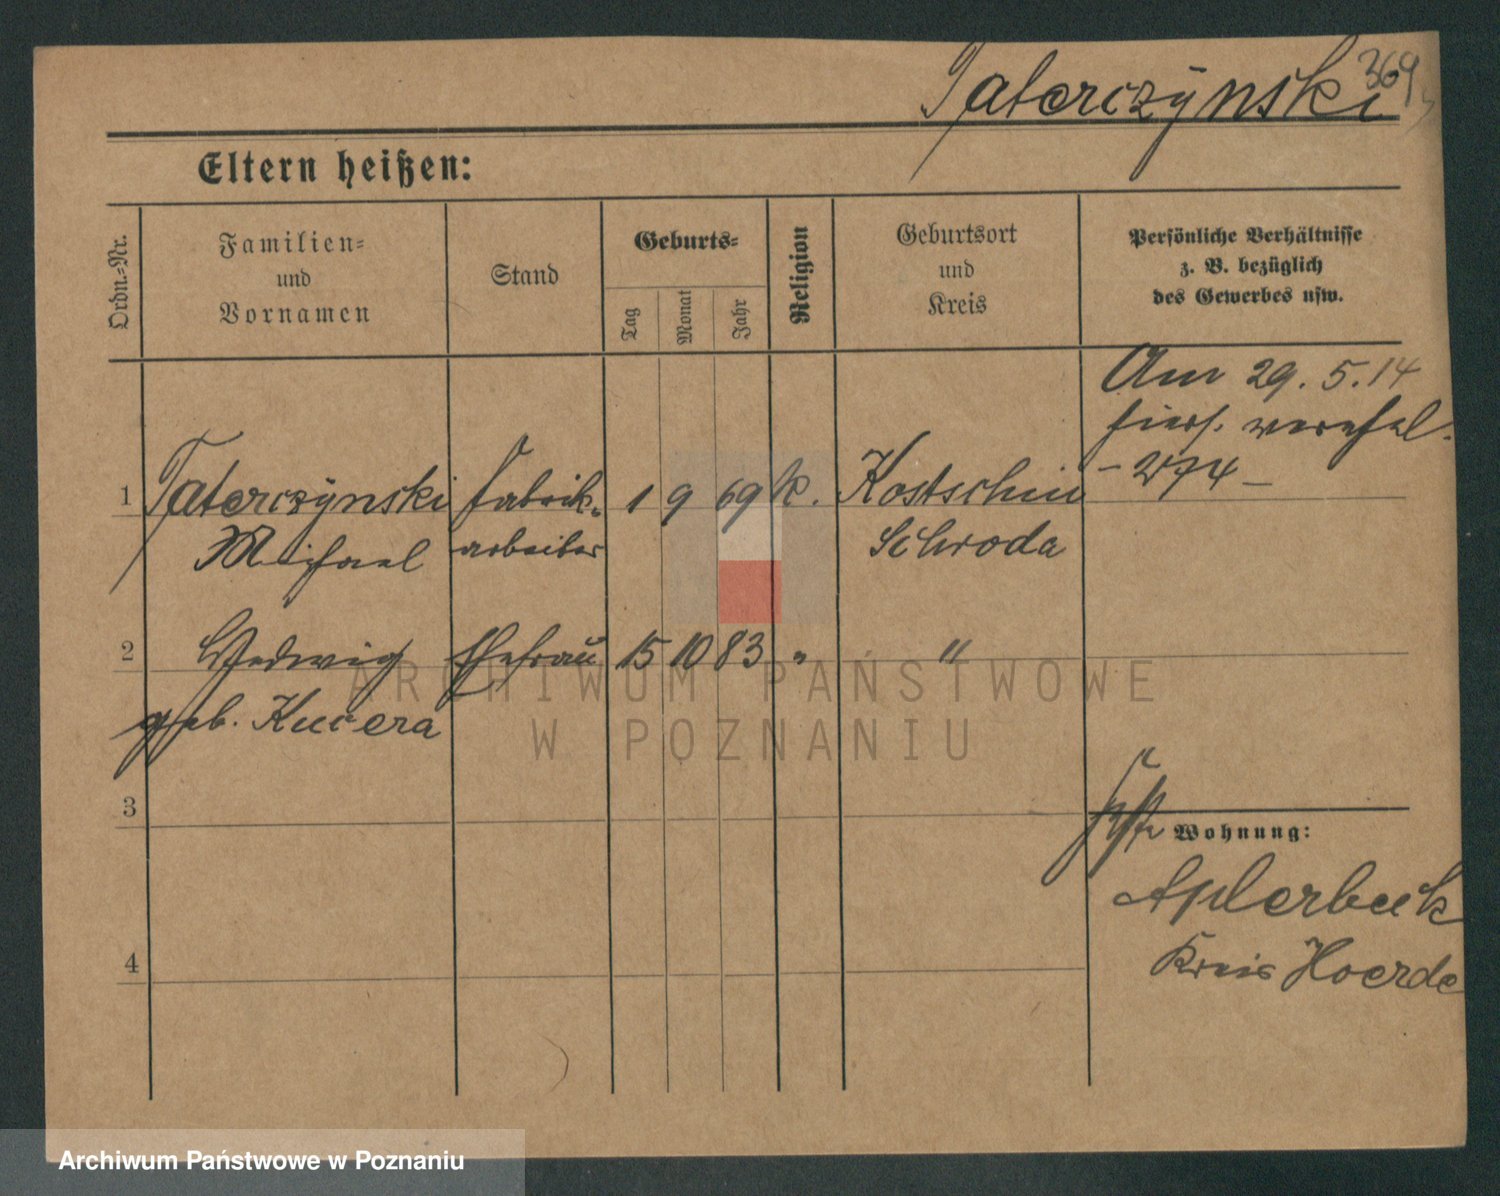 369
Taterczÿnski
Eltern heißen:
Ordn.-Nr.
Familien-
und
Vornamen
Stand
Geburts-
Tag
Monat
Jahr
Religion
Geburtsort
und
Kreis
Persönliche Verhältnisse
z. B. bezüglich
des Gewerbes usw.
Am 29. 5. 14
1 Taterczÿnski Fabrik- 1 9 69 k. Kostschin
Michael arbeiter Schroda
2 Hedwig Ehefrau 15 10 83 " "
geb. Kucera
3
Wohnung:
Aplerbeck
Kreis Hoerde
4
ARCHIWUM PAŃSTWOWE
W POZNANIU
Archiwum Państwowe w Poznaniu